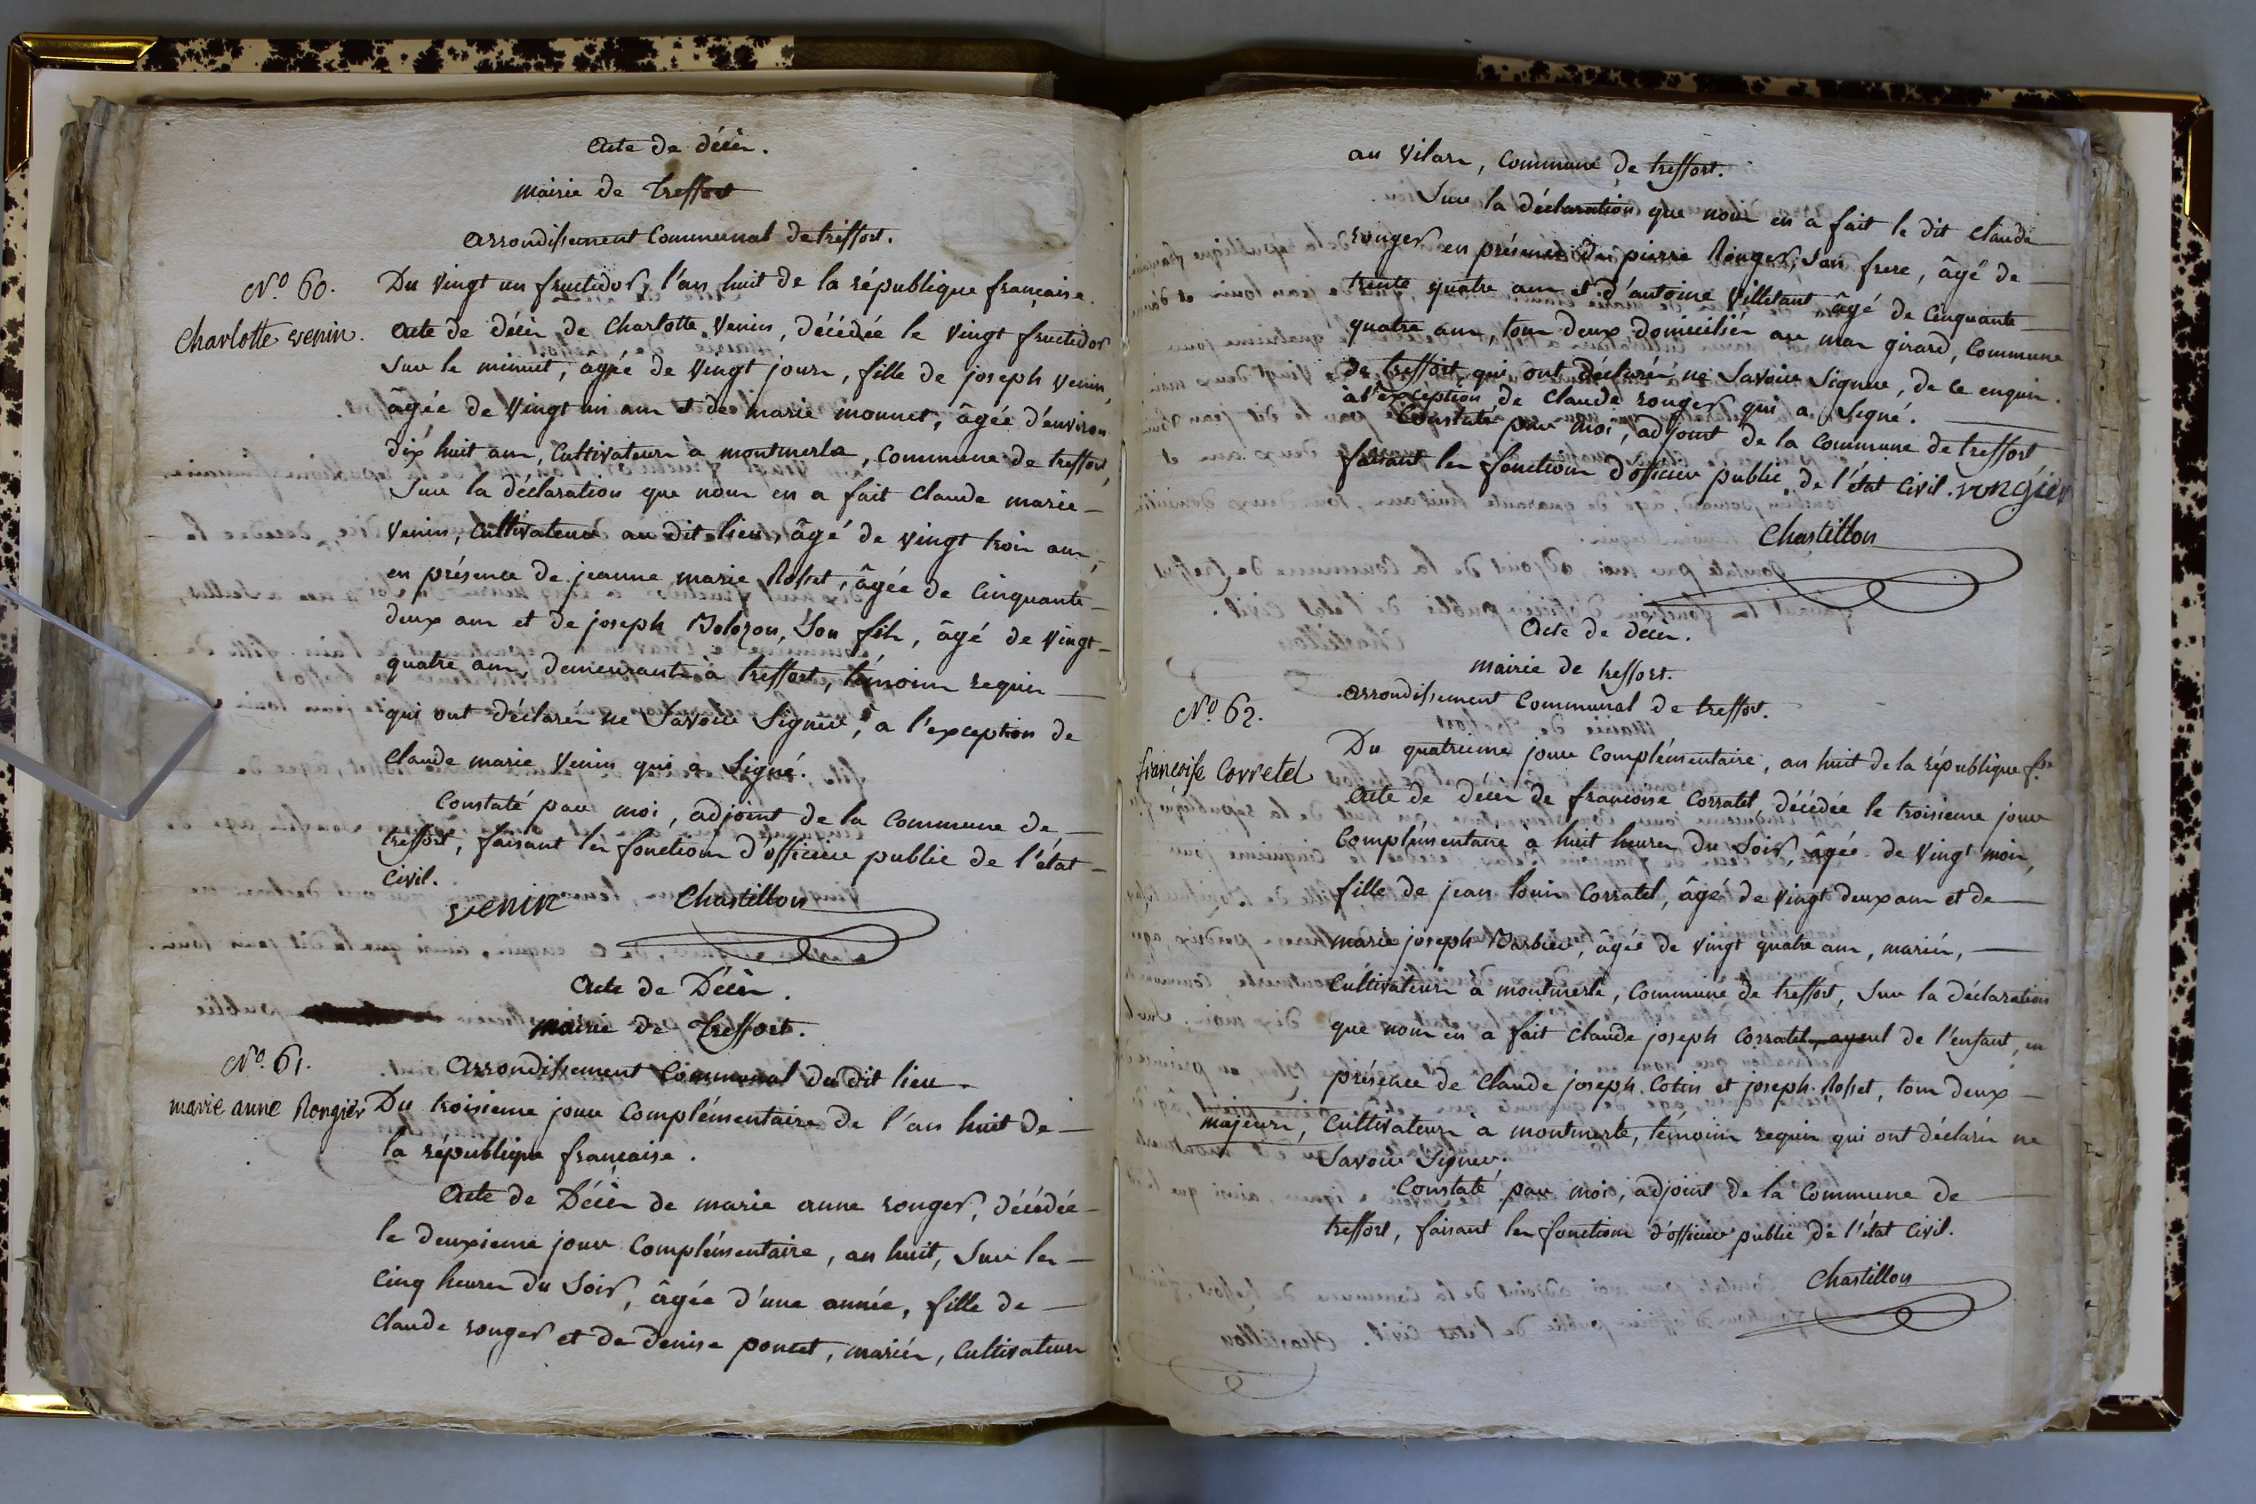 Acte de décès.
mairie de Treffort
arrondissement Communal de treffort.
N.º 60.
Charlotte venin.
Du vingt un fructidor, l'an huit de la république française.
Acte de décès de Charlotte Venin, décédée le vingt fructidor
sur le minuit, agée de vingt jours, fille de joseph venin,
âgée de vingt un ans et de marie monnet, âgée d'environ
dix huit ans, Cultivateurs à montmerle, Commune de treffort,
Sur la déclaration que nous en a fait Claude marie
Venin, Cultivateur au dit lieu, âgé de vingt trois ans,
en présence de jeanne marie Rosset, âgée de Cinquante
deux ans et de joseph Bolozon, Son fils, âgé de vingt
quatre ans demeurants à treffort, témoins requis
qui ont déclarés ne Savoir Signer, a l'exception de
Claude marie Venin qui a Signé.
Constaté par moi, adjoint de la Commune de
treffort, faisant les fonctions d'officier public de l'état
Civil.
venin Chastillon
Acte de Décès.
mairie de Treffort.
N.º 61.
marie anne Rongier
Arrondissement Communal du dit lieu
Du troisieme jour Complémentaire de l'an huit de
la république française.
Acte de Décès de marie anne ronger, décédée
le deuxieme jour Complémentaire, an huit, Sur les
Cinq heures du Soir, âgée d'une année, fille de
Claude ronger et de denise poncet, mariés, Cultivateurs
au vilars, Commune de treffort.
Sur la déclaration que nous en a fait le dit Claude
ronger en présence de pierre Ronger, Son frere, âgé de
trente quatre ans et d'antoine Villetant âgé de Cinquante
quatre ans, tous deux domiciliés au mas girard, Commune
de treffort qui ont déclarés ne Savoir Signer, de ce enquis.
à l'exception de Claude ronger qui a Signé.
Constaté par moi, adjoint de la Commune de treffort
faisant les fonctions d'officier public de l'état Civil. rongier
Chastillon
Acte de deces.
mairie de treffort.
arrondissement Communal de treffort.
N.º 62.
françoise Corretel
Du quatrieme jour Complémentaire, an huit de la république fse
Acte de décès de francoise Corratel, décédée le troisieme jour
Complémentaire a huit heures du Soir, âgée de vingt mois,
fille de jean louis Corratel, âgé de vingt deux ans et de
marie joseph Barbier, âgée de vingt quatre ans, mariés,
Cultivateurs à montmerle, Commune de treffort, Sur la déclaration
que nous en a fait Claude joseph Corratel, ayeul de l'enfant, en
présence de Claude joseph Cotin et joseph Rosset, tous deux
majeurs, Cultivateurs à montmerle, témoins requis qui ont déclarés ne
Savoir Signer.
Constaté par moi, adjoint de la Commune de
treffort, faisant les fonctions d'officier public de l'état Civil.
Chastillon